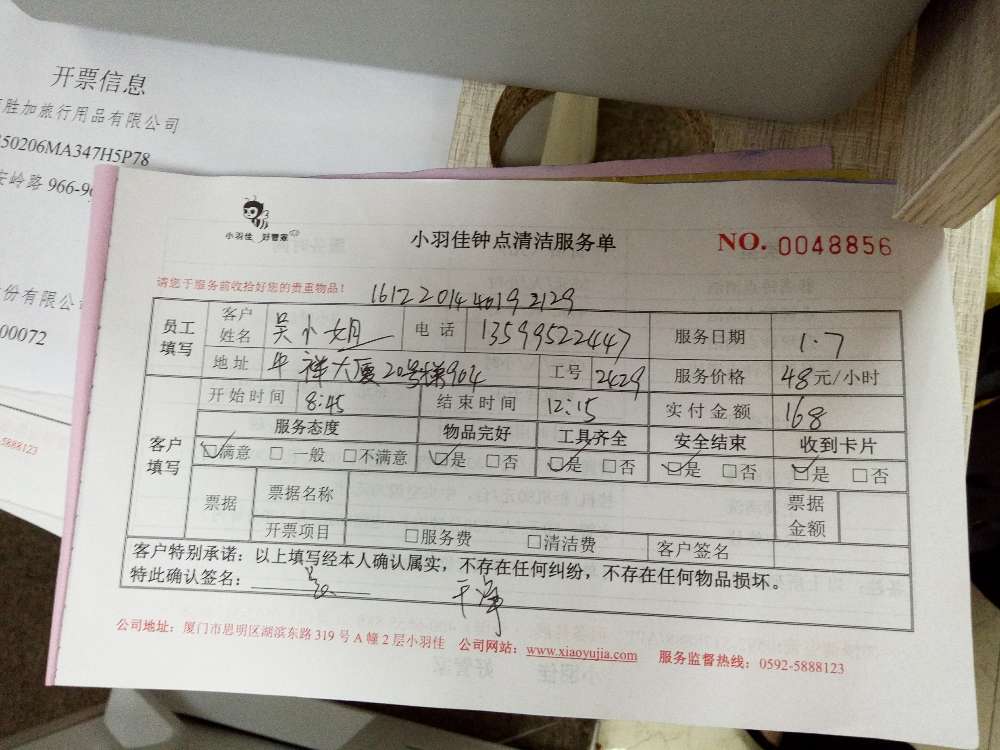 开票信息
胜加旅行用品有限公司
50206MA347H5P78
安岭路 966-9
份有限公
00072
5888123
小羽佳 好管家
小羽佳钟点清洁服务单
NO. 0048856
请您于服务前收拾好您的贵重物品！
1612 2014 4019 2129
员工填写 客户姓名 吴小娟 电话 13599522447 服务日期 1.7
地址 祥大厦20号楼904 工号 2429 服务价格 48元/小时
客户填写 开始时间 8:45 结束时间 12:15 实付金额 168
服务态度 物品完好 工具齐全 安全结束 收到卡片
☑满意 □一般 □不满意 ☑是 □否 ☑是 □否 ☑是 □否 ☑是 □否
票据 票据名称 票据金额
开票项目 □服务费 □清洁费 客户签名
客户特别承诺：以上填写经本人确认属实，不存在任何纠纷，不存在任何物品损坏。
特此确认签名： 干净
公司地址：厦门市思明区湖滨东路 319 号 A 幢 2 层小羽佳 公司网站：www.xiaoyujia.com 服务监督热线：0592-5888123